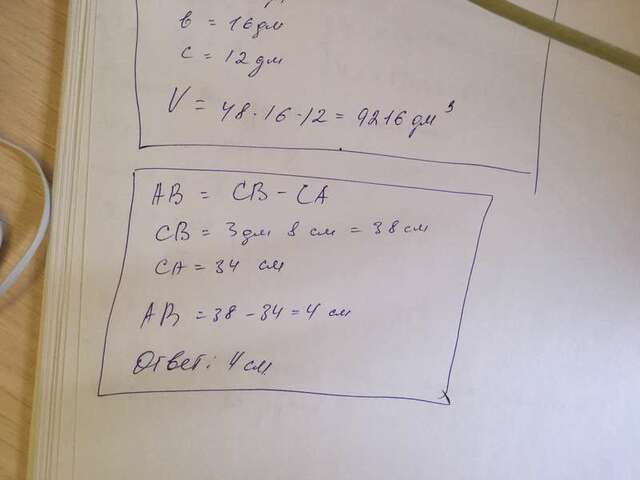 в = 16 дм
с = 12 дм
V = 48 · 16 · 12 = 9216 дм³
AB = CB - CA
CB = 3 дм 8 см = 38 см
CA = 34 см
AB = 38 - 34 = 4 см
Ответ: 4 см